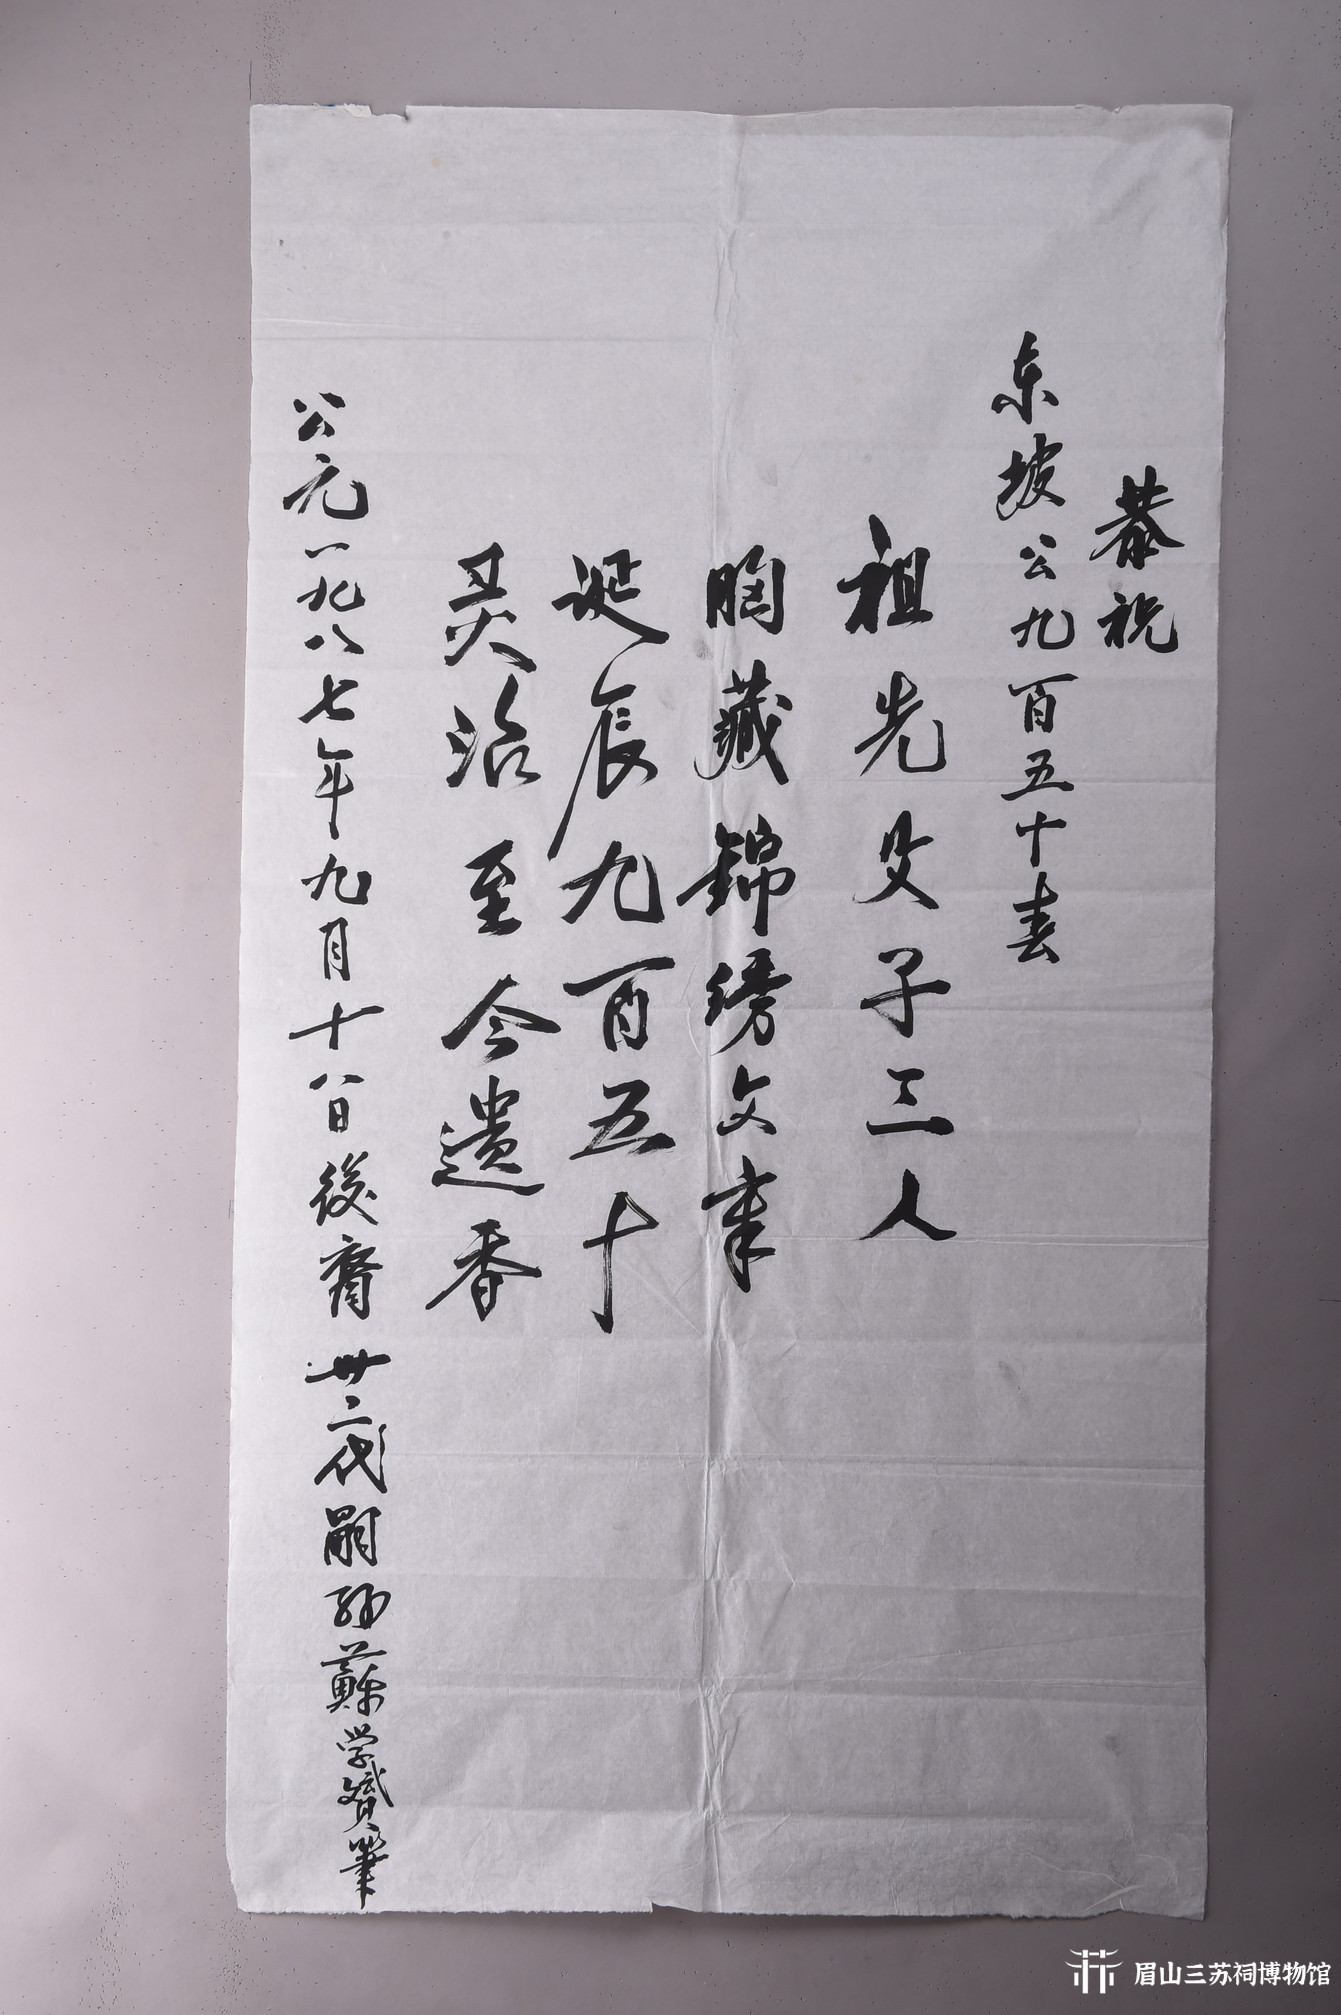 恭祝
东坡公九百五十春
祖先父子三人
胸藏锦绣文章
诞辰九百五十
灵治至今遗香
公元一九八七年九月十八日後裔卅二代嗣孙蘇学赟筆
眉山三苏祠博物馆